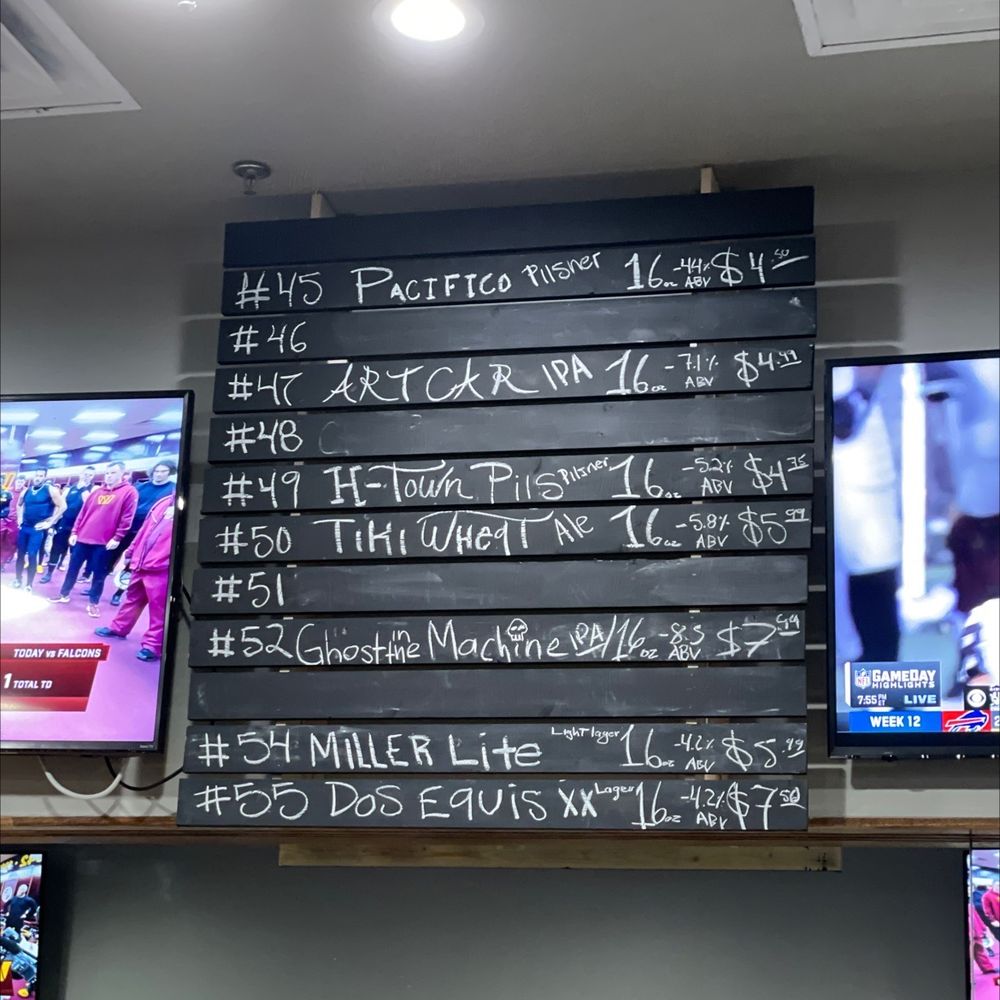 #45 PACIFICO Pilsner 16oz -4.4% ABV $4.50
#46
#47 ART CAR IPA 16oz -7.1% ABV $4.99
#48
#49 H-Town Pils Pilsner 16oz -5.2% ABV $4.75
#50 TIKI WHEAT Ale 16oz -5.8% ABV $5.99
#51
#52 Ghost in the Machine IPA/16oz -8.5 ABV $7.99
#54 MILLER Lite Light lager 16oz -4.2% ABV $5.99
#55 DOS EQUIS XX Lager 16oz -4.2% ABV $7.50
TODAY vs FALCONS
1 TOTAL TD
NFL GAMEDAY
HIGHLIGHTS
7:55 PM ET LIVE
WEEK 12